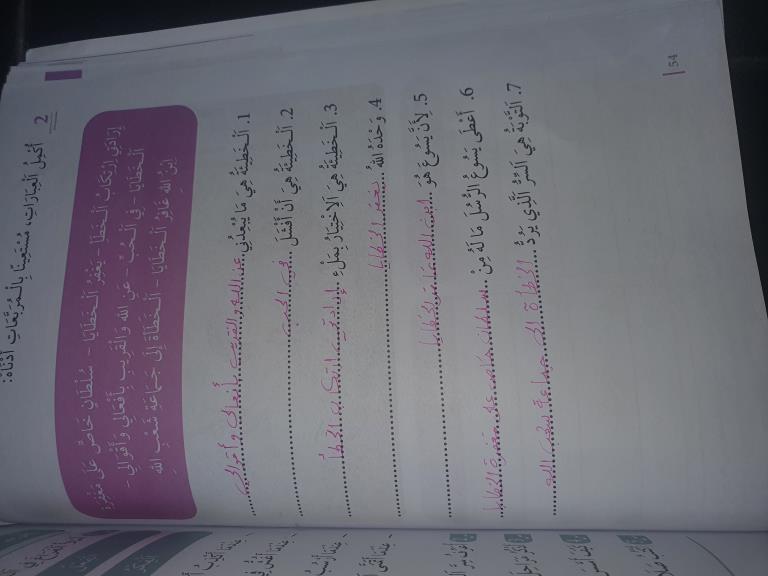 2 أُكْمِلُ الْعِبَارَاتِ، مُسْتَعِينًا بِالْمُرَبَّعَاتِ أَدْنَاهُ:
إِرَادَتِي ارْتِكَابُ الْخَطَأ - يَغْفِرُ الْخَطَايَا - سُلْطَانٍ خَاصٍّ عَلَى مَغْفِرَةِ
الْخَطَايَا - فِي الْحُبِّ - عَنِ اللهِ وَالْقَرِيبِ بِأَفْعَالِي وَأَقْوَالِي -
ابْنُ اللهِ غَافِرُ الْخَطَايَا - الْخَطَأَةَ إِلَى جَمَاعَةِ شَعْبِ اللهِ
1. اَلْخَطِيئَةُ هِيَ مَا يُبْعِدُنِي عن الله والقريب بأفعالي وأقوالي
2. اَلْخَطِيئَةُ هِيَ أَنْ أَفْشَلَ في الحب
3. اَلْخَطِيئَةُ هِيَ الِاخْتِيَارُ بِمَلْءِ إرادتي ارتكاب الخطأ
4. وَحْدَهُ اللهُ يغفر الخطايا
5. لِأَنَّ يَسُوعَ هُوَ ابن الله غافر الخطايا
6. أَعْطَى يَسُوعُ الرُّسُلَ مَا لَهُ مِنْ سلطان خاص على مغفرة الخطايا
7. اَلتَّوْبَةُ هِيَ السِّرُّ الَّذِي يَرُدُّ الخطأة إلى جماعة شعب الله
54